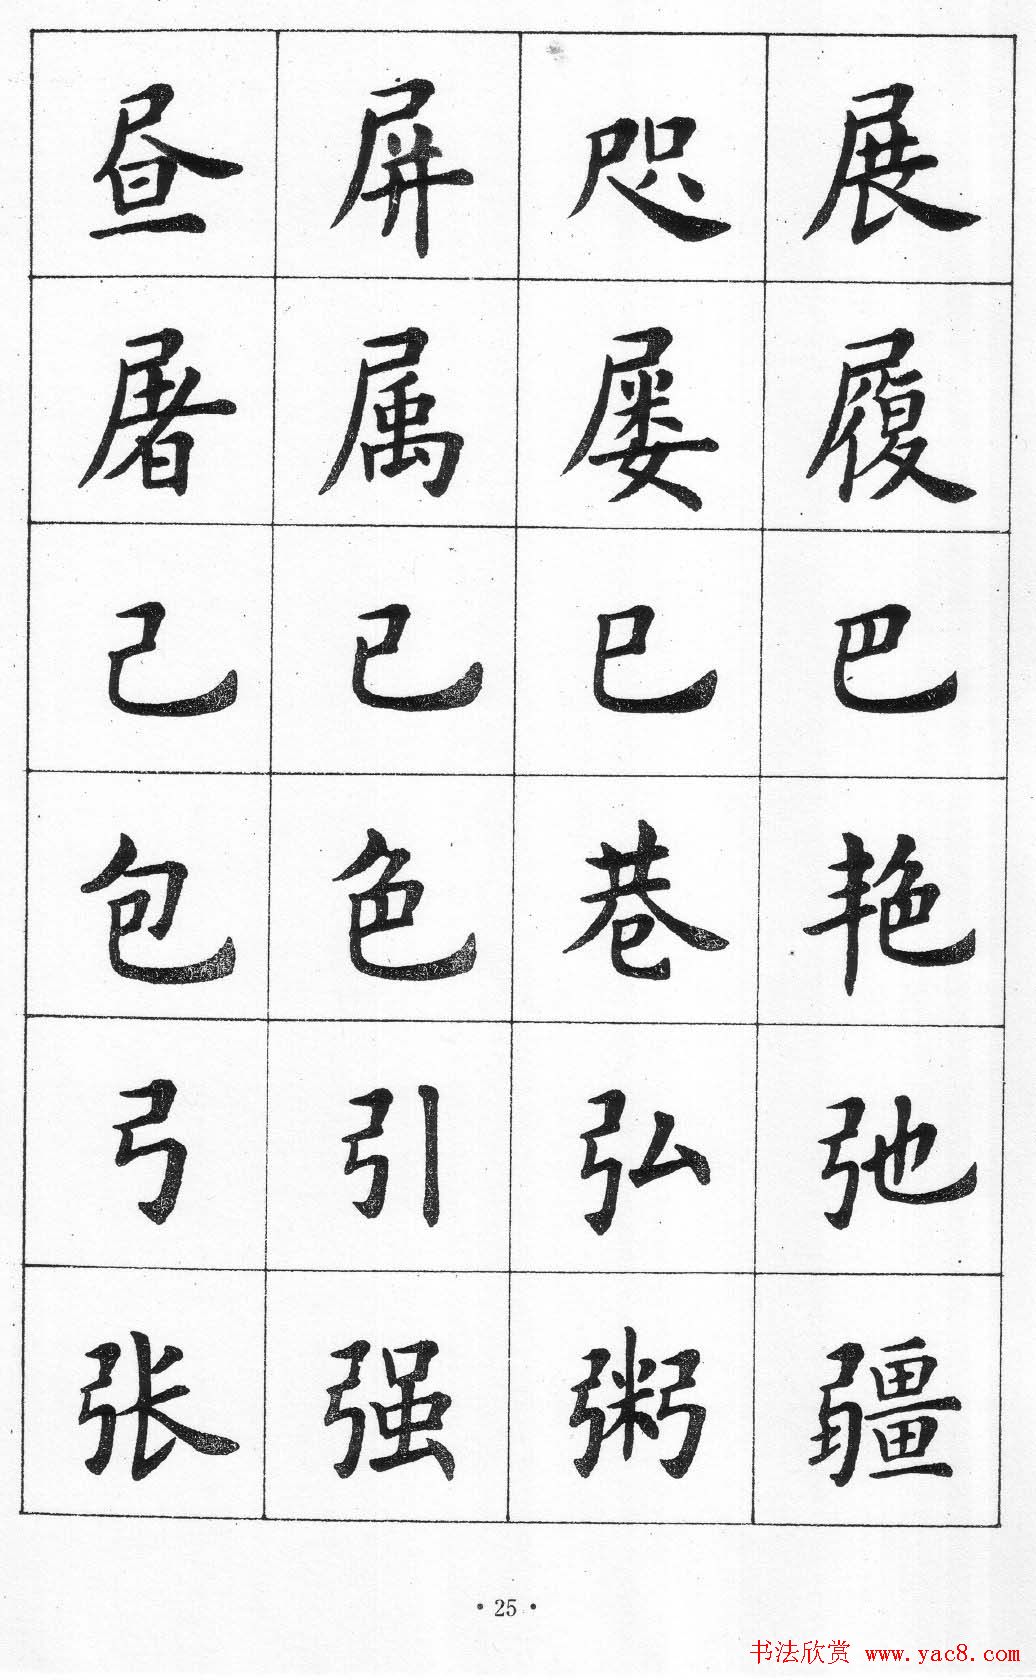 昼 屏 咫 展
屠 属 屡 履
己 已 巳 巴
包 色 巷 艳
弓 引 弘 弛
张 强 粥 疆
·25·
书法欣赏 www.yac8.com